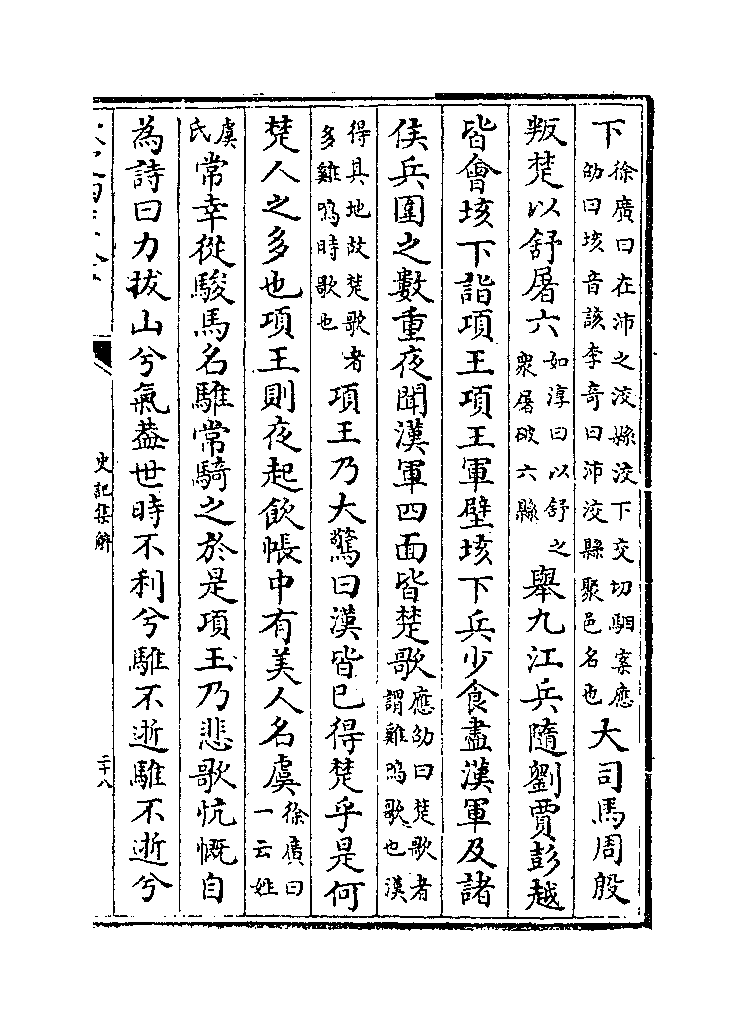 下徐廣曰在沛之洨縣洨下交切駰案應劭曰垓音該李奇曰沛洨縣聚邑名也大司馬周殷
叛楚以舒屠六如淳曰以舒之衆屠破六縣舉九江兵隨劉賈彭越
皆會垓下詣項王項王軍壁垓下兵少食盡漢軍及諸
侯兵圍之數重夜聞漢軍四面皆楚歌應劭曰楚歌者謂雞鳴歌也漢
得其地故楚歌者多雞鳴時歌也項王乃大驚曰漢皆已得楚乎是何
楚人之多也項王則夜起飲帳中有美人名虞徐廣曰一云姓
虞氏常幸從駿馬名騅常騎之於是項王乃悲歌忼慨自
為詩曰力拔山兮氣葢世時不利兮騅不逝騅不逝兮
史記集解
二十八